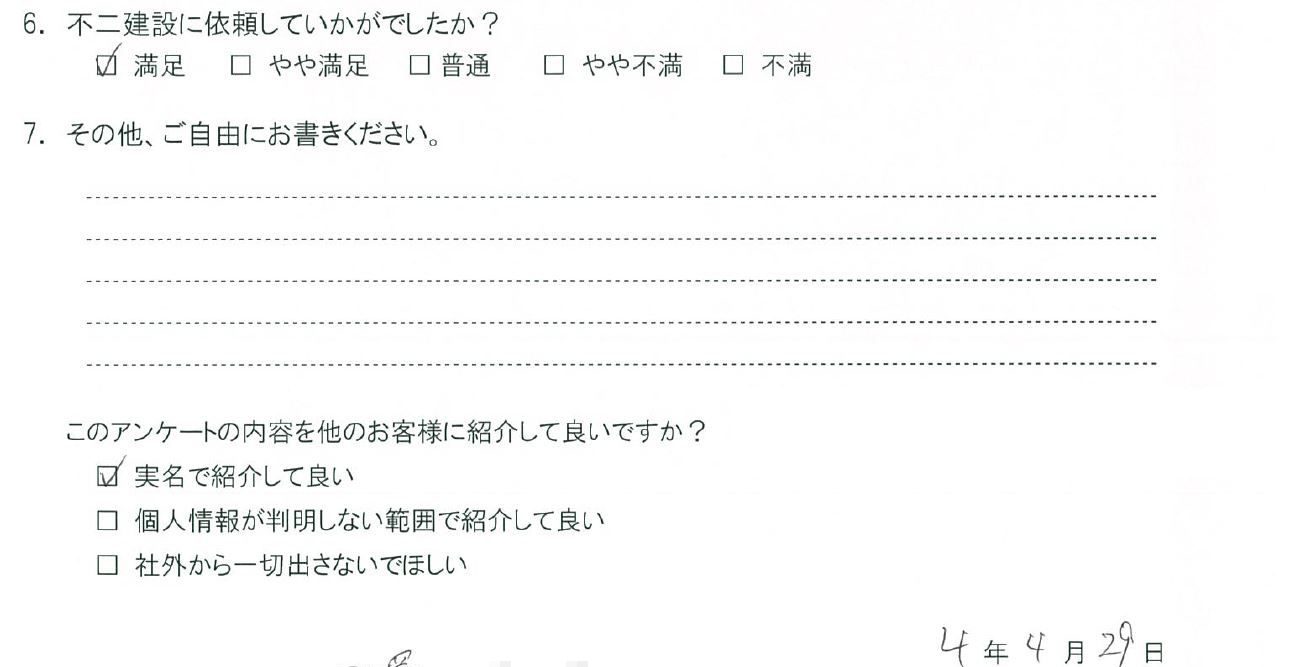 6. 不二建設に依頼していかがでしたか？
☑ 満足 □ やや満足 □ 普通 □ やや不満 □ 不満
7. その他、ご自由にお書きください。
このアンケートの内容を他のお客様に紹介して良いですか？
☑ 実名で紹介して良い
□ 個人情報が判明しない範囲で紹介して良い
□ 社外から一切出さないでほしい
4 年 4 月 29 日